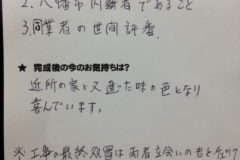 2.八幡市内業者であること
3.同業者の世間評番
★ 完成後の今のお気持ちは?
近所の家と又違った味の色となり
喜んでいます。
※工事の最終処置は両者立会いのもと